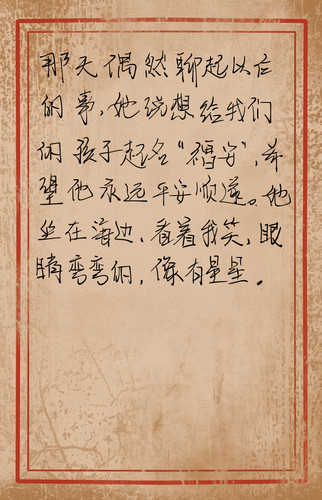 那天偶然聊起以后
的事，她说想给我们
的孩子起名“福安”，希
望他永远平安顺遂。她
坐在海边，看着我笑，眼
睛弯弯的，像有星星。